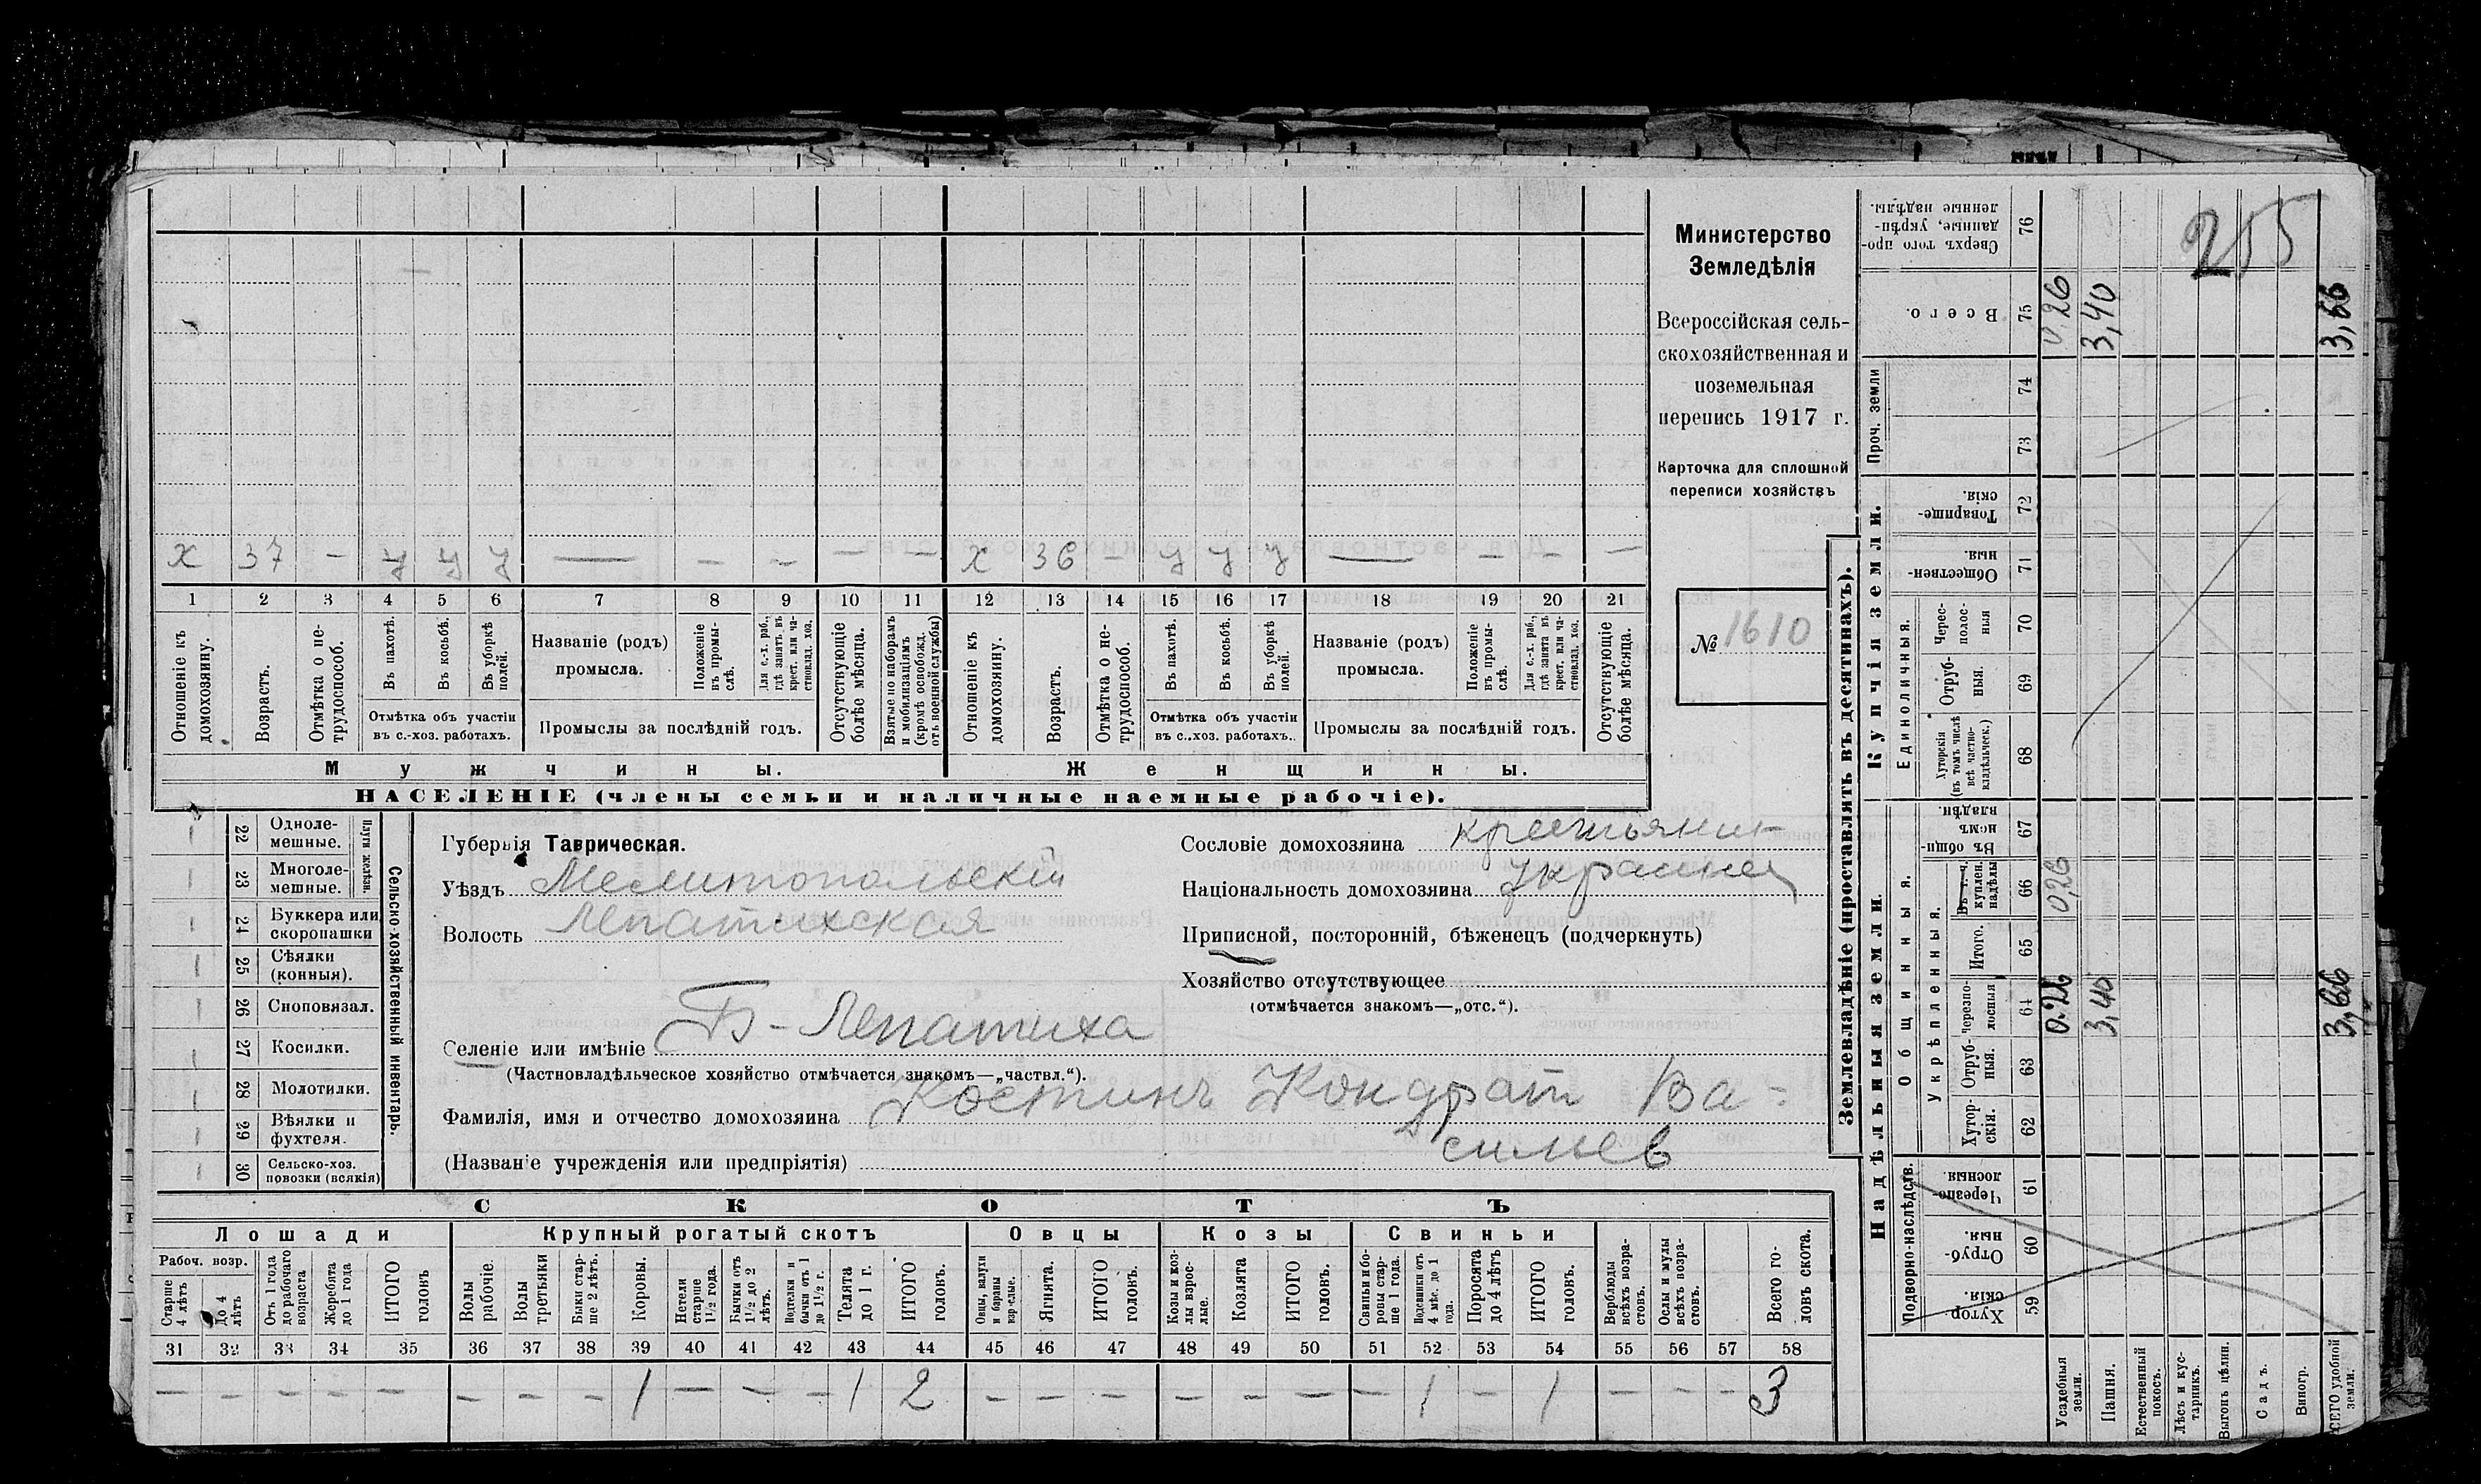 255
Министерство
Земледѣлія
Всероссійская сель-
скохозяйственная и
поземельная
перепись 1917 г.
Карточка для сплошной
переписи хозяйствъ
№ 1610
х 37 — у у у — — — — — х 36 — у у у — — — —
1 2 3 4 5 6 7 8 9 10 11 12 13 14 15 16 17 18 19 20 21
Отношеніе къ домохозяину.
Возрастъ.
Отмѣтка о не-трудоспособ.
Въ пахотѣ.
Въ косьбѣ.
Въ уборкѣ полей.
Отмѣтка объ участіи
въ с.-хоз. работахъ.
Названіе (родъ)
промысла.
Положеніе въ промы-слѣ.
Для с.-х. раб., гдѣ занятъ въ крест. или ча-стновлад. хоз.
Промыслы за послѣдній годъ.
Отсутствующіе болѣе мѣсяца.
Взятые по наборамъ и мобилизаціямъ (кромѣ освобожд. отъ военной службы)
Отношеніе къ домохозяину.
Возрастъ.
Отмѣтка о не-трудоспособ.
Въ пахотѣ.
Въ косьбѣ.
Въ уборкѣ полей.
Отмѣтка объ участіи
въ с..хоз. работахъ..
Названіе (родъ)
промысла.
Положеніе въ промы-слѣ.
Для с.-х. раб., гдѣ занята въ крест. или ча-стновлад. хоз.
Промыслы за послѣдній годъ.
Отсутствующіе болѣе мѣсяца.
Мужчины.
Женщины.
НАСЕЛЕНІЕ (члены семьи и наличные наемные рабочіе).
Сельско-хозяйственный инвентарь.
Плуги желѣзн.
— 22 Одноле-мешные.
— 23 Многоле-мешные.
— 24 Буккера или скоропашки
— 25 Сѣялки (конныя).
— 26 Сноповязал.
— 27 Косилки.
— 28 Молотилки.
— 29 Вѣялки и фухтеля.
— 30 Сельско-хоз. повозки (всякія)
Губернія Таврическая.
Уѣздъ Мелитопольскій
Волость Лепатихская
Сословіе домохозяина крестьянин
Національность домохозяина украинец
Приписной, посторонній, бѣженецъ (подчеркнуть)
Хозяйство отсутствующее
(отмѣчается знакомъ—„отс.“).
Селеніе или имѣніе Б-Лепатиха
(Частновладѣльческое хозяйство отмѣчается знакомъ—„частвл.“).
Фамилія, имя и отчество домохозяина Костинъ Кондрат Ва-
сильев
(Названіе учрежденія или предпріятія)
СКОТЪ
Лошади
Крупный рогатый скотъ
Овцы
Козы
Свиньи
Рабоч. возр.
Старше 4 лѣтъ
До 4 лѣтъ
Отъ 1 года до рабочаго возраста
Жеребята до 1 года
ИТОГО головъ
Волы рабочіе.
Волы третьяки
Быки стар-ше 2 лѣтъ.
Коровы.
Нетели старше 1½ года.
Бычки отъ 1½ до 2 лѣтъ.
Подтелки и бычки отъ 1 до 1½ г.
Телята до 1 г.
ИТОГО головъ.
Овцы, валухи и бараны взрослые.
Ягнята.
ИТОГО головъ.
Козы и коз-лы взрос-лые.
Козлята
ИТОГО головъ.
Свиньи и бо-ровы стар-ше 1 года.
Подсвинки отъ 4 мѣс. до 1 года.
Поросята до 4 лѣтъ
ИТОГО головъ.
Верблюды всѣхъ возра-стовъ.
Ослы и мулы всѣхъ возра-стовъ.
Всего го-ловъ скота.
31 32 33 34 35 36 37 38 39 40 41 42 43 44 45 46 47 48 49 50 51 52 53 54 55 56 57 58
— — — — — — — — 1 — — — 1 2 — — — — — — — 1 — 1 — — — 3
Землевладѣніе (проставлять въ десятинахъ).
Надѣльныя земли.
Купчія земли.
Проч. земли
Подворно-наслѣдств.
Общинныя.
Укрѣпленныя.
Единоличныя.
Хутор-скія. 59
Отруб-ныя. 60
Черезпо-лосныя 61
Хутор-скія. 62
Отруб-ныя. 63
Черезпо-лосныя 64
Итого. 65
Въ т. ч. куплен. надѣлы 66
Въ общин-номъ владѣн. 67
Хуторскія (въ томъ числѣ всѣ частно-владѣльческ.) 68
Отруб-ныя. 69
Черес-полос-ныя 70
Обществен-ныя. 71
Товарище-скія. 72
73
74
Всего. 75
Сверхъ того про-данные, укрѣп-ленные надѣлы. 76
Усадебныя земли. 0.26 0,26 0.26
Пашня. 3,40 3,40
Естественный покосъ.
Лѣсъ и кус-тарникъ.
Выгонъ цѣлин.
Садъ.
Виногр.
ВСЕГО удобной земли. 3,66 3,66